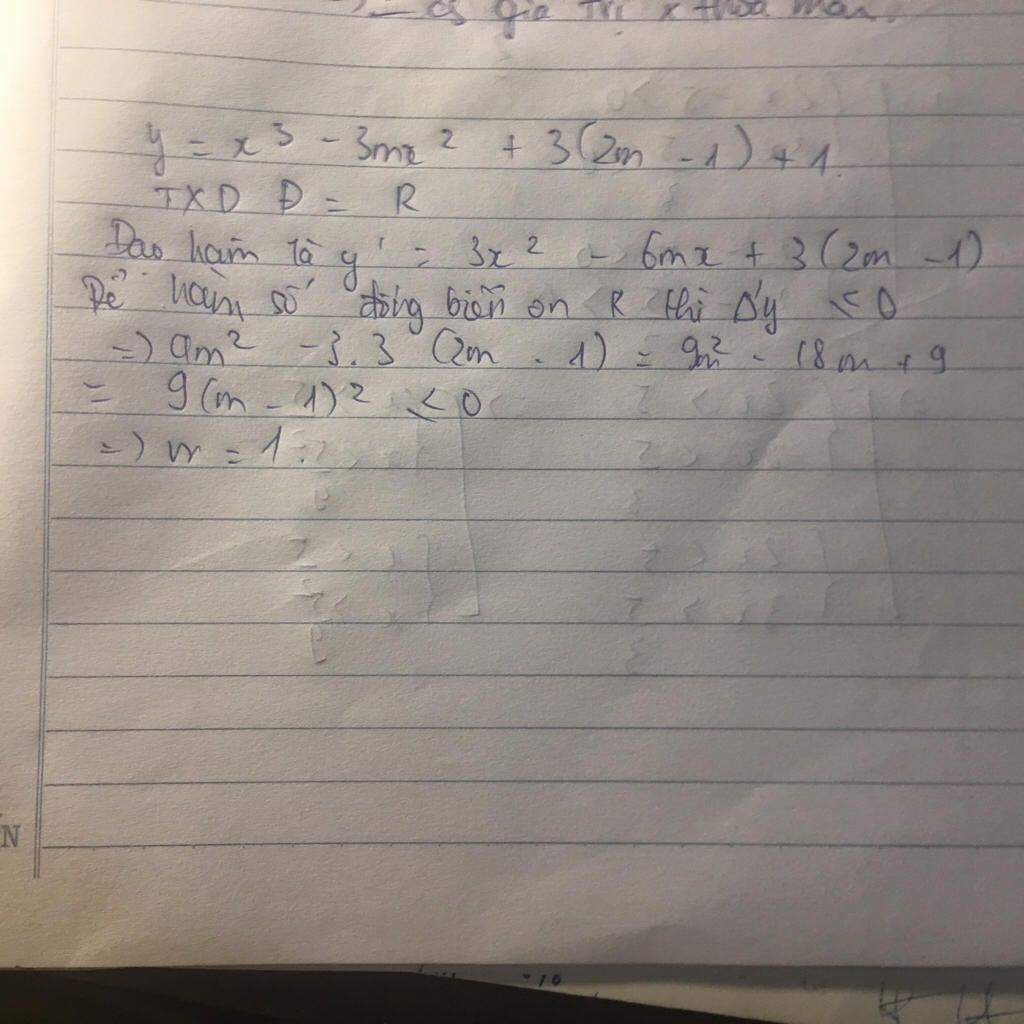 giá trị x thoả mãn.
y = x³ - 3mx² + 3(2m - 1) + 1.
TXD D = R
Đạo hàm là y' = 3x² - 6mx + 3(2m - 1)
Để hàm số đồng biến on R thì Δ'y ≤ 0
=> 9m² - 3.3 (2m - 1) = 9m² - 18m + 9
= 9(m - 1)² ≤ 0
=> m = 1.
N
-10